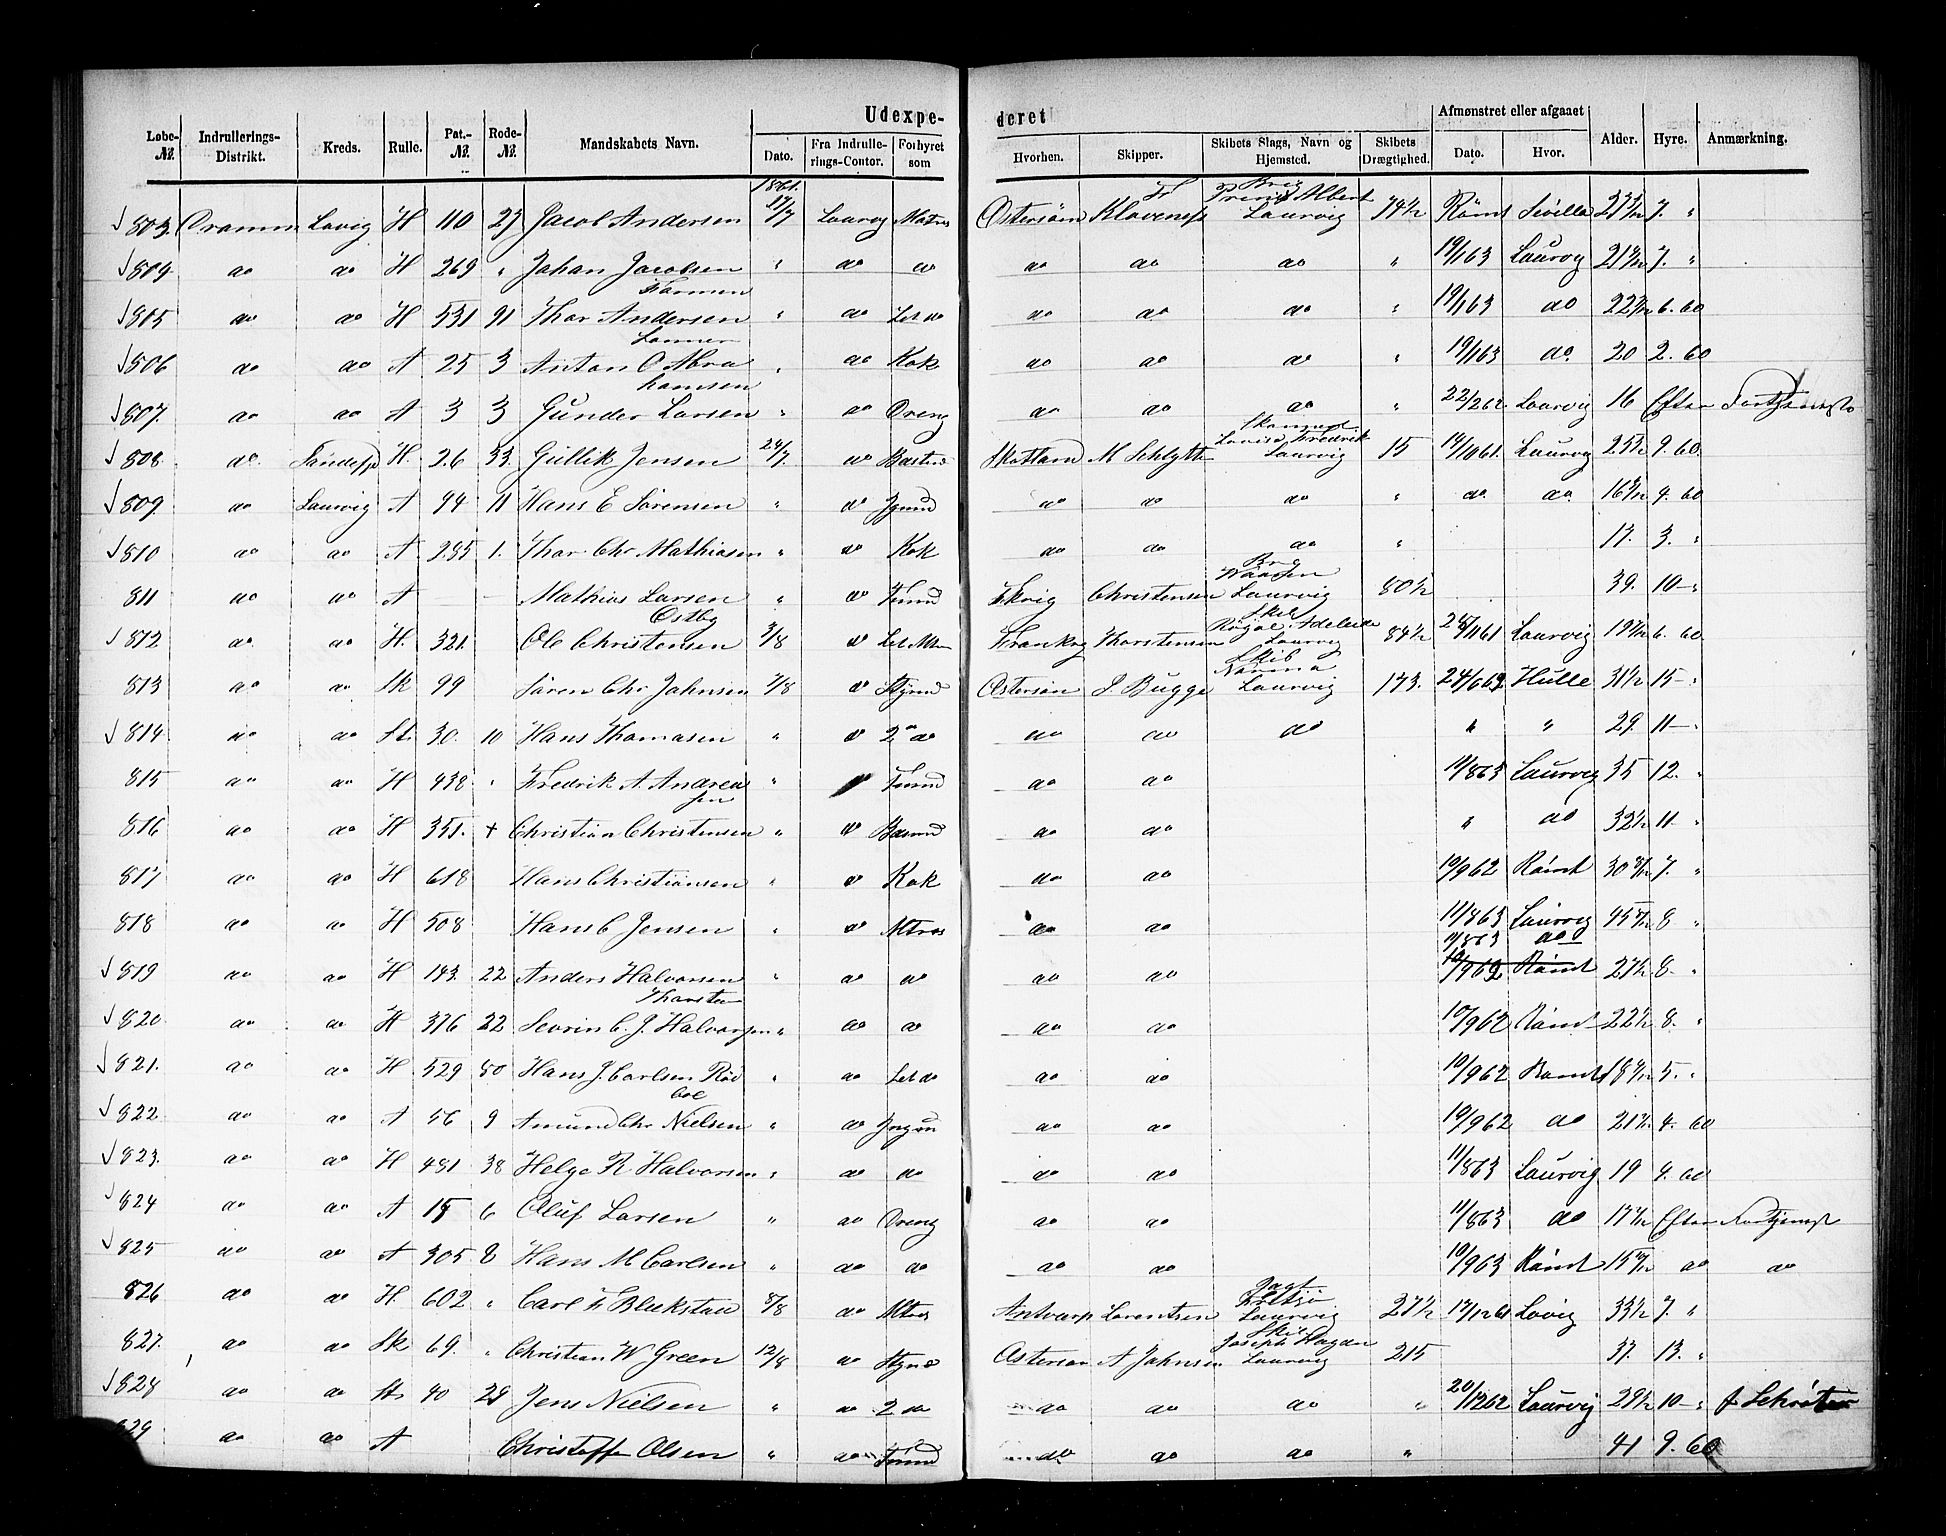 Udexpe- deret
Løbe-№. Indrullerings-Distrikt. Kreds. Rulle. Pat.-№. Rode-№. Mandskabets Navn. Dato. Fra Indrullerings-Contor. Forhyret som Hvorhen. Skipper. Skibets Slags, Navn og Hjemsted. Skibets Drægtighed. Afmønstret eller afgaaet Dato. Hvor. Alder. Hyre. Anmærkning.
1861.
803. Dramm Lavig H 110 27 Jacob Andersen 17/7 Laurvg Matros Østersöen Klavenes Brig Prinds Albert Laurvig 74½ Rømt Sevilla 7 "
804 do do H 269 " Johan Jacobsen " do do do do do " 19/1 63 Laurvg 7. "
Farmen
805 do do H 531 91 Thor Andersen " do Let do do do do " 19/1 63 do 6. 60
806 do do A 25 3 Anton O Abra " do Kok do do do " 19/1 63 do 20 2. 60
hamsen
807. do do A 3 3 Gunder Larsen " do Dreng do do do " 22/2 62 Laurvig 16 Efter Fortjeneste
808 do. H. 26 33. Gullik Jensen 24/7. do Skotland M Schlytter Lovise Fredrik Laurvig 15 14/10 61. Laurvg 9. 60.
809. do Laurvig A 94 11 Hans E Sørensen " do Jgmd do do do " do do 4. 60
810 do do A 285 1. Thor Chr Mathiasen " do Kok do do do " 17. 3. "
811 do do A Mathias Larsen " do Tmmd Ekvig Christensen Brig Laurvig 80½ 39. 10 "
Østby
812 do do H. 321. Ole Christensen 3/8 do Let Mtros Frankrg Thorstensen Skib Royal Adelaide Laurvg 84½ Laurvig 6. 60
813 do do Sk 99 Søren Chr Johnsen 7/8 do Stymd Østersöen J. Bugge Skib Norma Laurvig 173. Hulle 31½ 15 "
814 do do St. 30. 10 Hans Thomasen " do 2 do do do do " " 29. 11 "
815 do do H 438. " Fredrik A. Andrea " Tmmd do do 11/8 63 Laurvig 35 12. "
sen
816 do do H 351. + Christian Christensen " do do do " do 32½ 11 "
817 do do H 618 Hans Christiansen " do Kok do do 10/9 62 Rømt 7. "
818 do do H 508 Hans C Jensen " do Mtros do do 11/8 63 Laurvig 8 "
11/8 63 do
819 do do H 143. 22 Anders Halvorsen " do do do do Rømt 8. "
Thorsten
820 do do H 376 22 Sevrin C. J. Halvorsen " do do do do 10/9 62 Rømt 8. "
821. do do H 529 80 Hans J. Carlsen Rød " do Let do do do 10/9 62 Rømt 5. "
bol
822 do do A 56 9 Amund Chr Nielsen " do Jngm do do 10/9 62 do 4. 60
823. do do H 481 38 Helge R Halvorsen " do do do do 11/8 63 Laurvig 19 4. 60
824 do do A 15 6 Oluf Larsen " do Dreng do do 11/8 63 do Efter Fortjenst
825 do do A 305 8 Hans M Carlsen " do do do do 10/9 63 Rømt do do
826 do do H. 602. " Carl F Blekstau 8/8 do Mtros Antvarp Lorentzen Jagt Laurvig 27½ 17/12 61 Lavig 33½ 7. "
827. do do Sk 69. " Christian W Green 12/8 do Stymd Østersöen A Johnsen Skib Joseph Haydn Laurvig 215 37. 13. "
828 do do St. 40 29 Jens Nielsen " do 2 do do do do " 20/12 62 Laurvig 29½ 10 "
829 do do A Christoffer Olsen " do Tmmd do do do " 41 9. 60